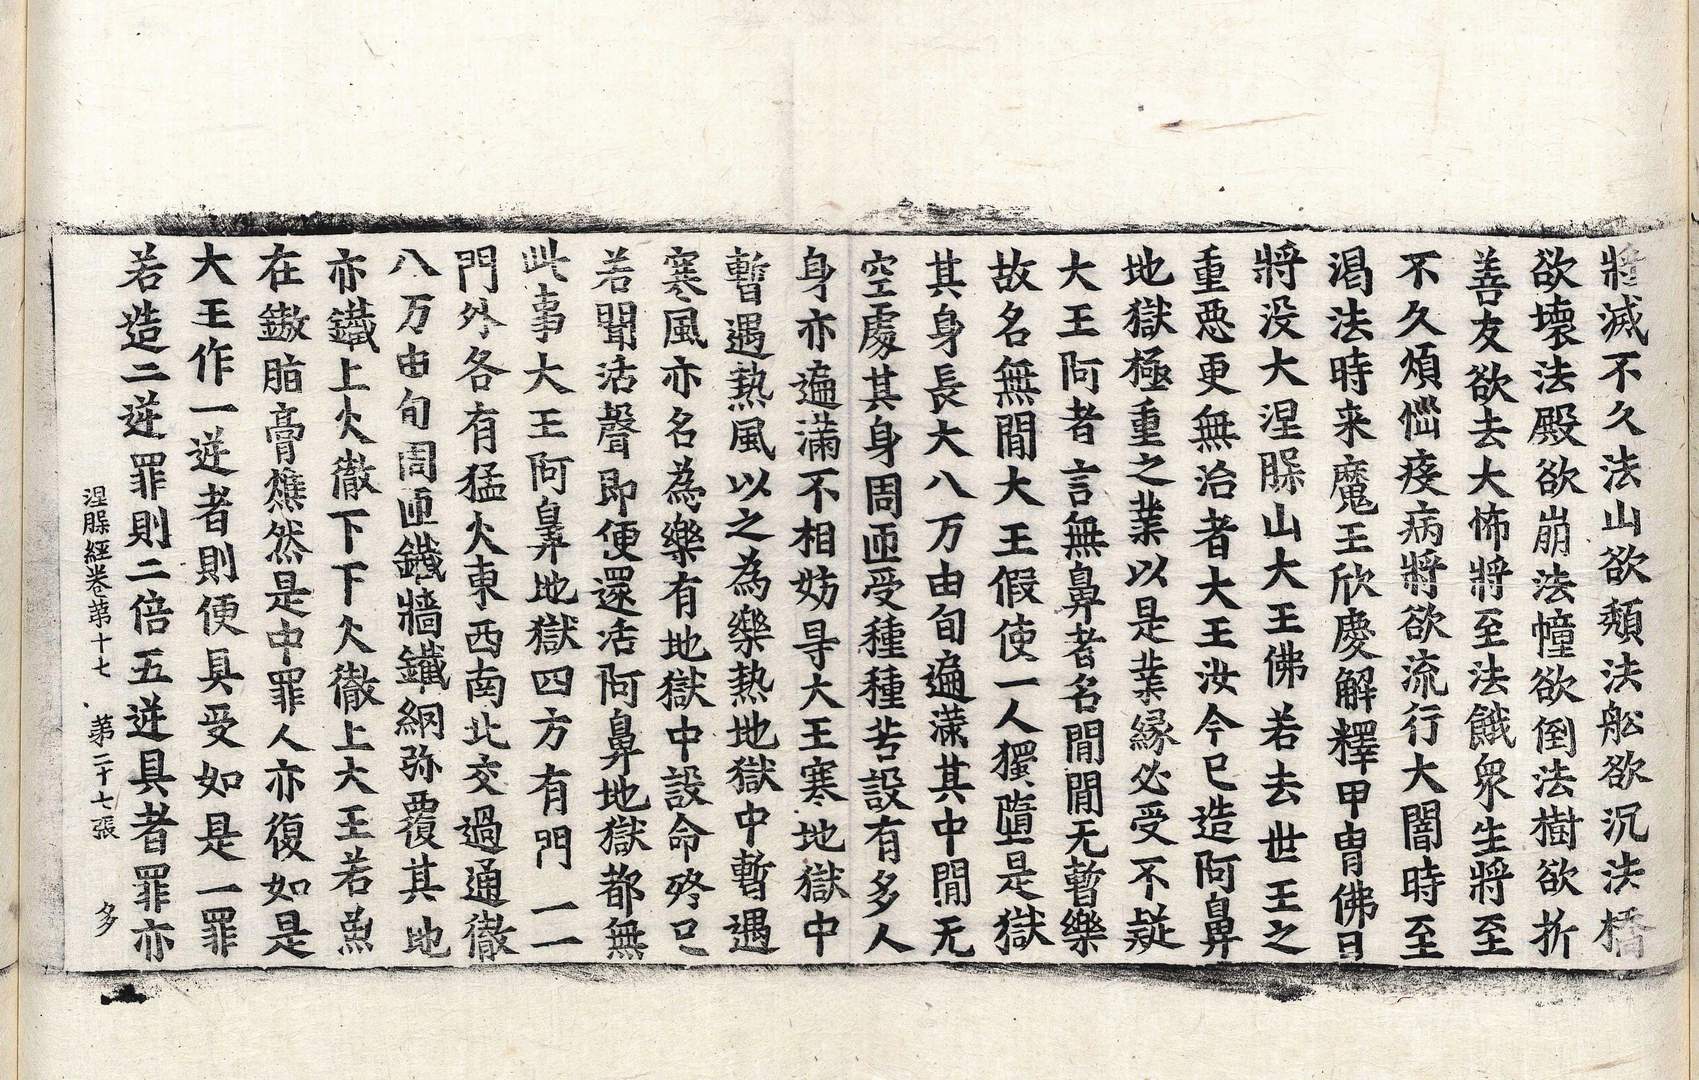 將滅不久法山欲頹法舩欲沉法橋
欲壞法殿欲崩法幢欲倒法樹欲折
善友欲去大怖將至法餓衆生將至
不久煩惱疫病將欲流行大闇時至
渴法時来魔王欣慶解釋甲胄佛日
將没大涅槃山大王佛若去世王之
重惡更無治者大王汝今已造阿鼻
地獄極重之業以是業緣必受不疑
大王阿者言無鼻者名閒閒无暫樂
故名無閒大王假使一人獨墮是獄
其身長大八万由旬遍滿其中閒无
空處其身周匝受種種苦設有多人
身亦遍滿不相妨㝵大王寒地獄中
暫遇熱風以之為樂熱地獄中暫遇
寒風亦名為樂有地獄中設命終已
若聞活聲即便還活阿鼻地獄都無
此事大王阿鼻地獄四方有門一一
門外各有猛火東西南北交過通徹
八万由旬周匝鐵牆鐵網弥覆其地
亦鐵上火徹下下火徹上大王若魚
在鏊脂膏燋然是中罪人亦復如是
大王作一逆者則便具受如是一罪
若造二逆罪則二倍五逆具者罪亦
涅槃經卷第十七 第二十七張 多